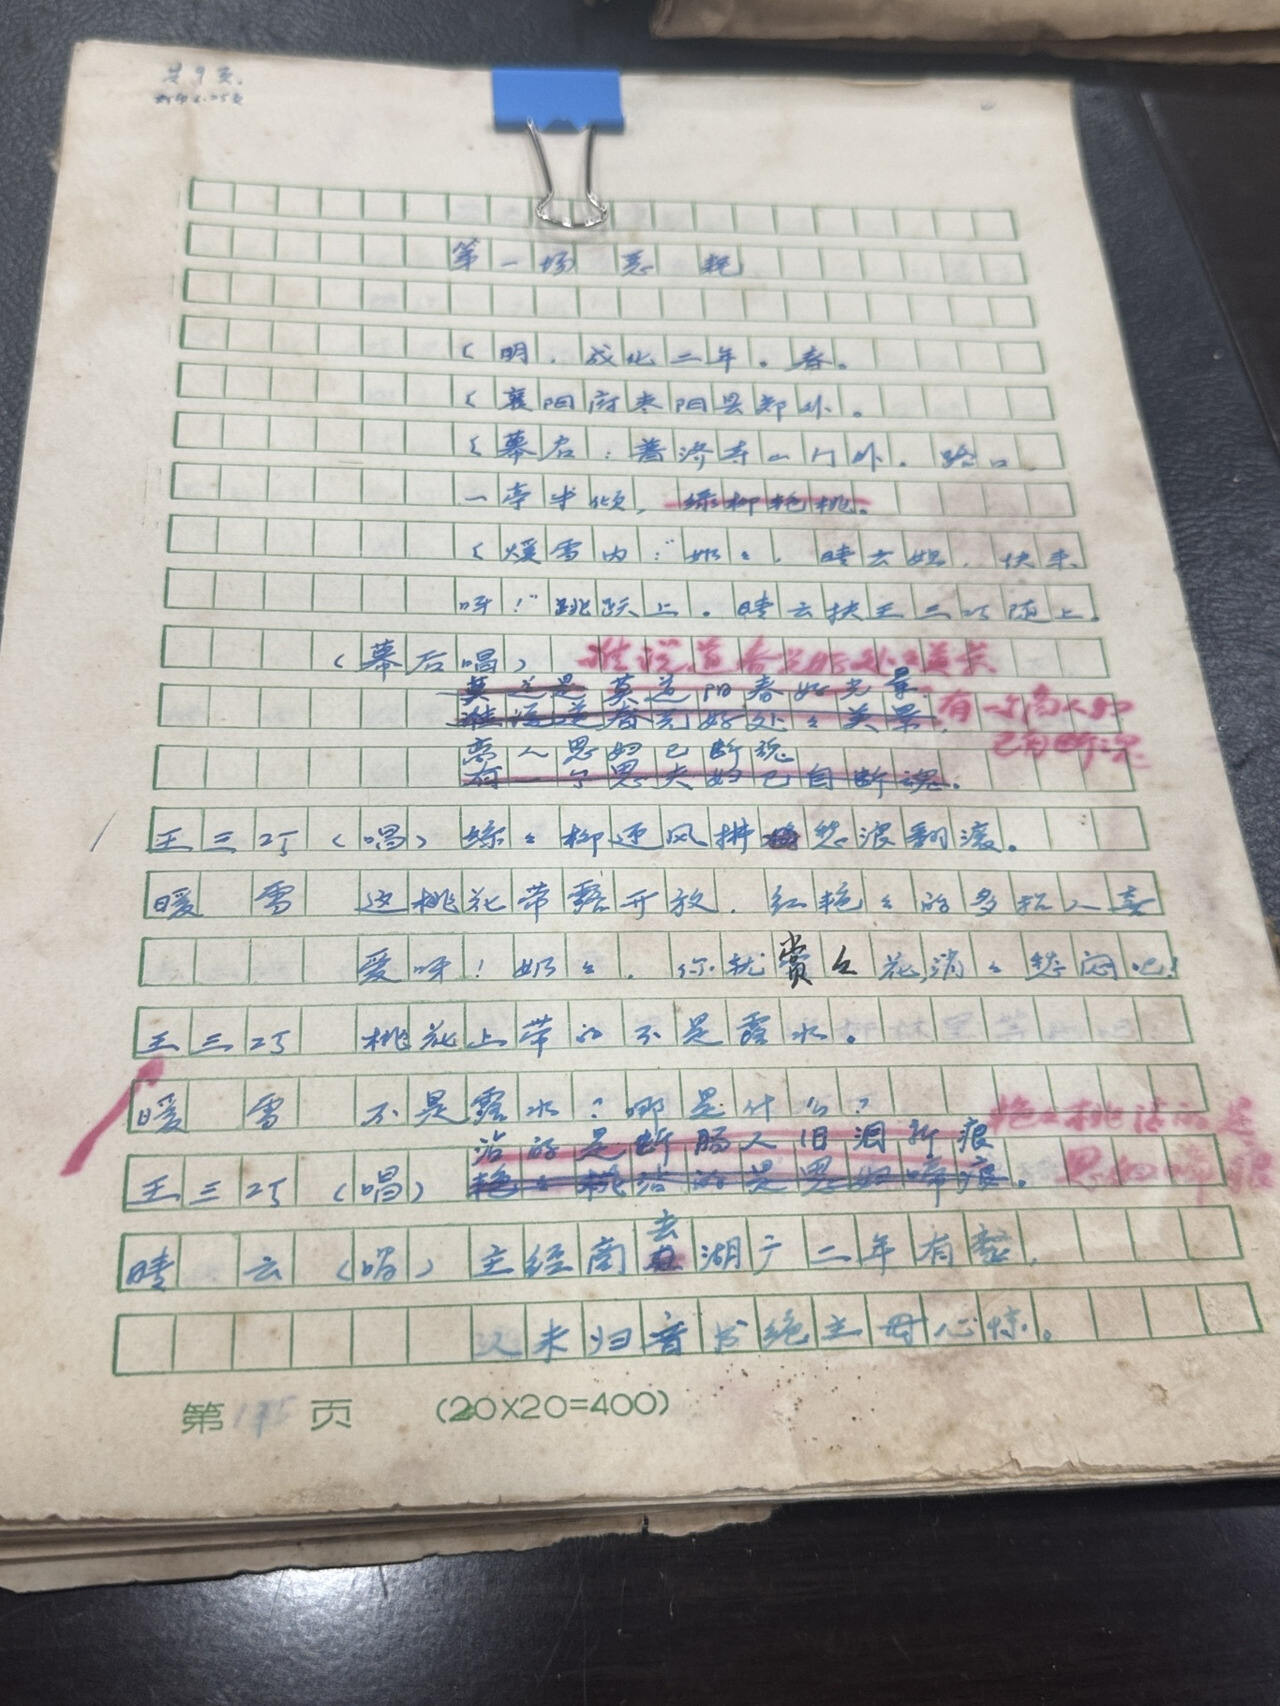 共9页.
第一场 恶耗
(明.成化二年。春。
(襄阳府枣阳县郊外。
(幕启:普济寺山门外.路口
一亭半倾,绿柳艳桃。
(煖雪内:“奶々,晴云姐,快来
呀!”跳跃上。晴云扶王三巧随上。
(幕后唱) 谁说道春光好处々美景
莫道是 莫道阳春好光景
谁说道春光好处々美景, 有一个商人妇
商人思妇已断魂 已自断魂
有一个思夫妇已自断魂。
王三巧(唱)绿々柳迎风拂 愁波翻滚。
暖 雪 这桃花带露开放.红艳々的多招人喜
爱呀!奶々.你就赏々花消々愁闷吧!
王三巧 桃花上带的不是露水。
暖 雪 不是露水?哪是什么?
沾的是断肠人旧泪新痕 艳々桃沾的是
王三巧(唱)艳々桃沾的是思妇啼痕。 思妇啼痕
去
晴 云(唱)主经商 湖广二年有整,
久未归音书绝主母心惊。
第175页 (20X20=400)